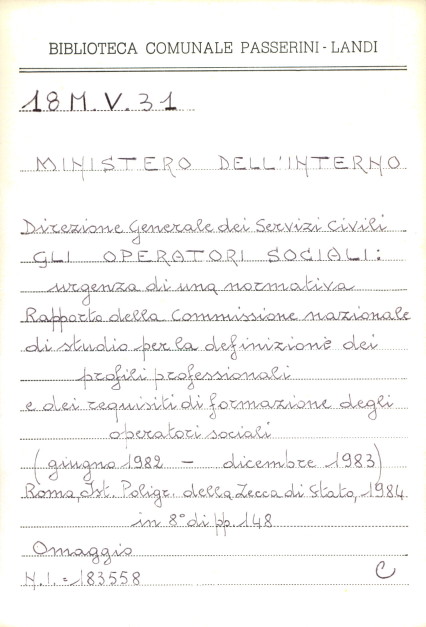 BIBLIOTECA COMUNALE PASSERINI - LANDI
18 M. V. 31
MINISTERO DELL'INTERNO
Direzione Generale dei Servizi Civili
GLI OPERATORI SOCIALI:
urgenza di una normativa
Rapporto della Commissione nazionale
di studio per la definizione dei
profili professionali
e dei requisiti di formazione degli
operatori sociali
(giugno 1982 - dicembre 1983)
Roma, Ist. Poligr. della Zecca di Stato, 1984
in 8° di pp. 148
Omaggio
N.I. = 183558 C